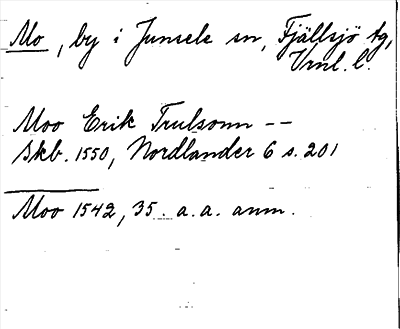 Mo, by i Junsele sn, Fjällsjö tg,
Vrnl. l.
Moo Erik Trulsonn --
Skb. 1550, Nordlander 6 s. 201
Moo 1542, 35. a. a. anm.